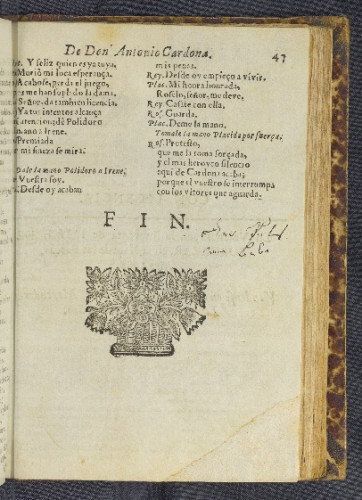 De Don Antonio Cardona. 47
Y feliz quien es ya tuya,
Murió mi loca esperança.
Acabose, perdi el juego,
me han soplado la dama.
Señor, da tambien licencia.
Ya tus intentos alcança
atencion, dè Polidoro
mano à Irene.
Premiada
mi fineza se mira.
Dale la mano Polidoro a Irene.
Vuestra soy.
Desde oy acaban
mis penas.
Rey. Desde oy empieço a vivir.
Plac. Mi honra honrada,
Roselo, señor, me deve.
Rey. Casate con ella.
Ros. Guarda.
Plac. Deme la mano.
Tomale la mano Placida por fuerça.
Ros. Protesto,
que me la toma forçada,
y el mas heroyco silencio
aqui de Cardona acaba;
porque el vuestro se interrumpa
con los vitores que aguarda.
FIN.